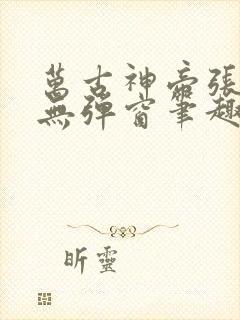 萬古神帝張
無彈窗筆趣
昕靈